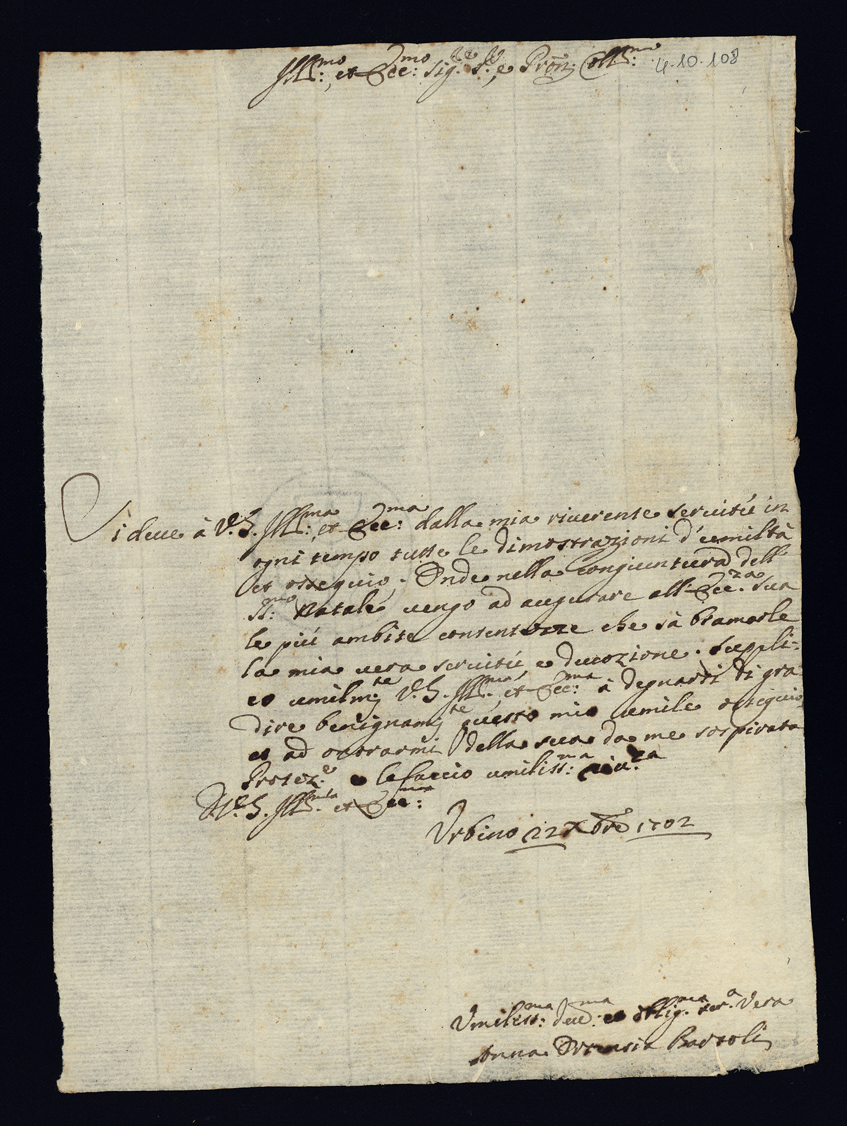 Ill:mo, et Ecc:mo Sig.re S.re, e Pron: Coll:mo 4-10-108
Si deue à V.S. Ill:ma, et Ecc:ma dalla mia riuerente seruitù in
ogni tempo tutte le dimostrazioni d'umiltà
et ossequio. Onde nella congiuntura dell'
SS:mo Natale uengo ad augurare all'Ecc:za sua
le più ambite contentezze che sà bramarle
la mia uera seruitù e deuozione. Suppli=
co umilm:te V.S. Ill:ma et Ecc:ma à degnarsi di gra
dire benignam:te questo mio umile ossequio,
et ad onrarmi della sua da me sospirata
Protez:e e le faccio umiliss:ma riu:za
D.V.S. Ill:ma et Ecc:ma
Urbino 22 Xbre 1702
Umiliss:ma Deu:ma et Oblig:ma ser:a Vera
Anna Bartoli